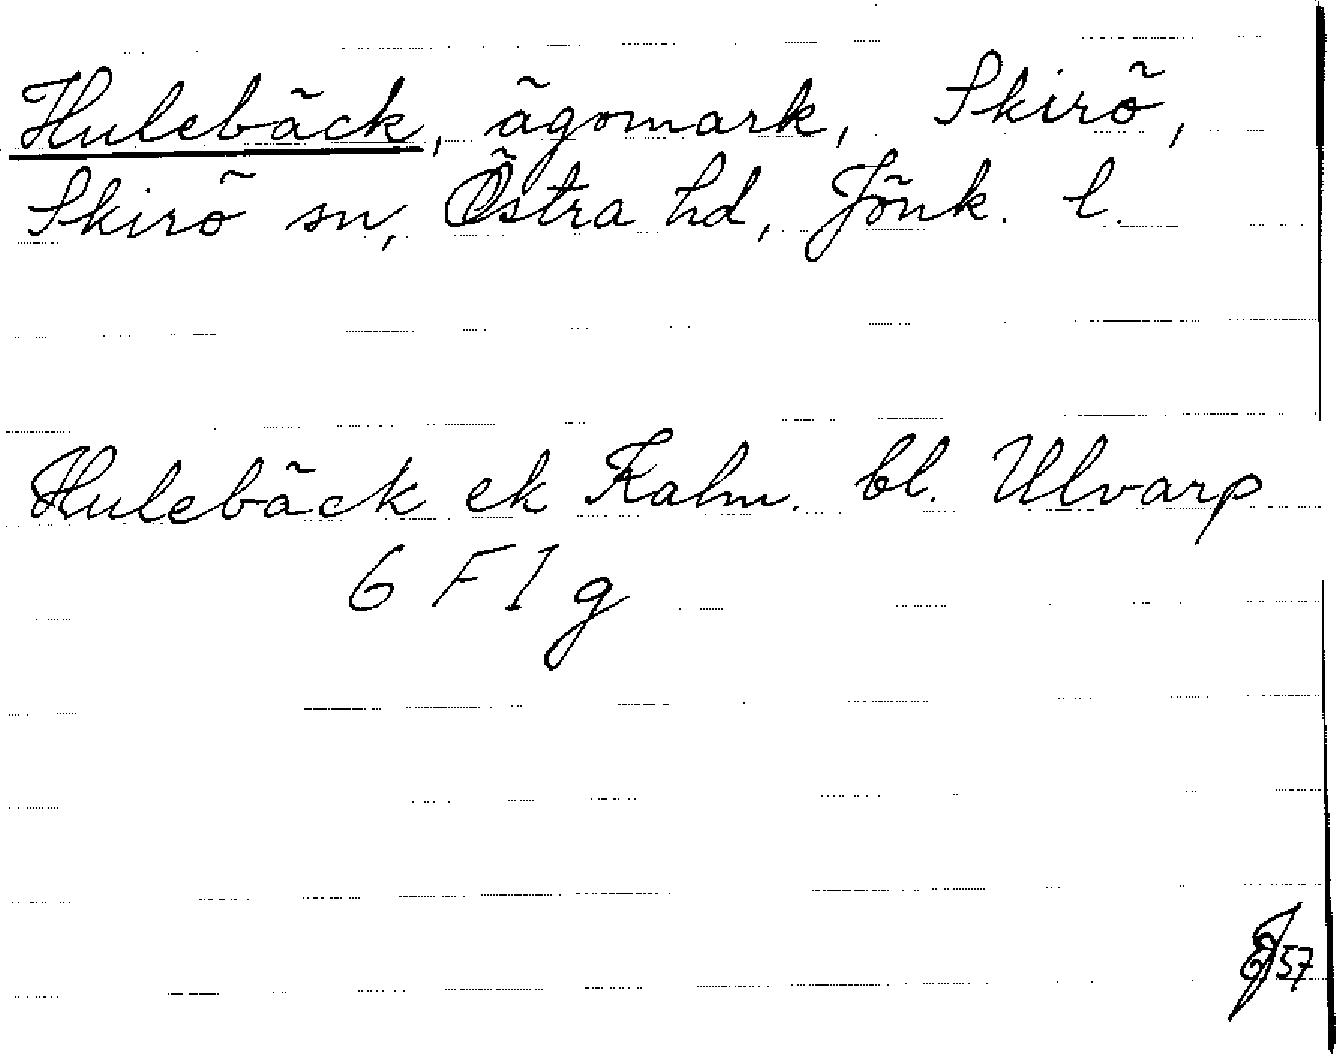 Hulebäck, ägomark, Skirö,
Skirö sn, Östra hd, Jönk. l.
Hulebäck ek Kalm. bl. Ulvarp
6 F 1 g
57